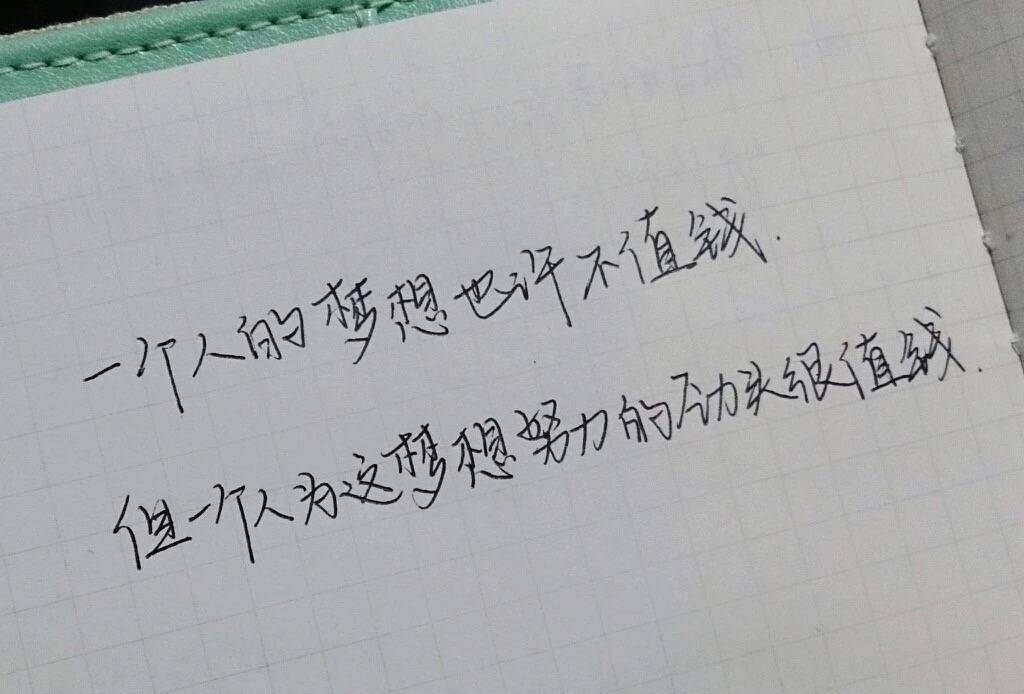 一个人的梦想也许不值钱.
但一个人为这梦想努力的劲头很值钱.